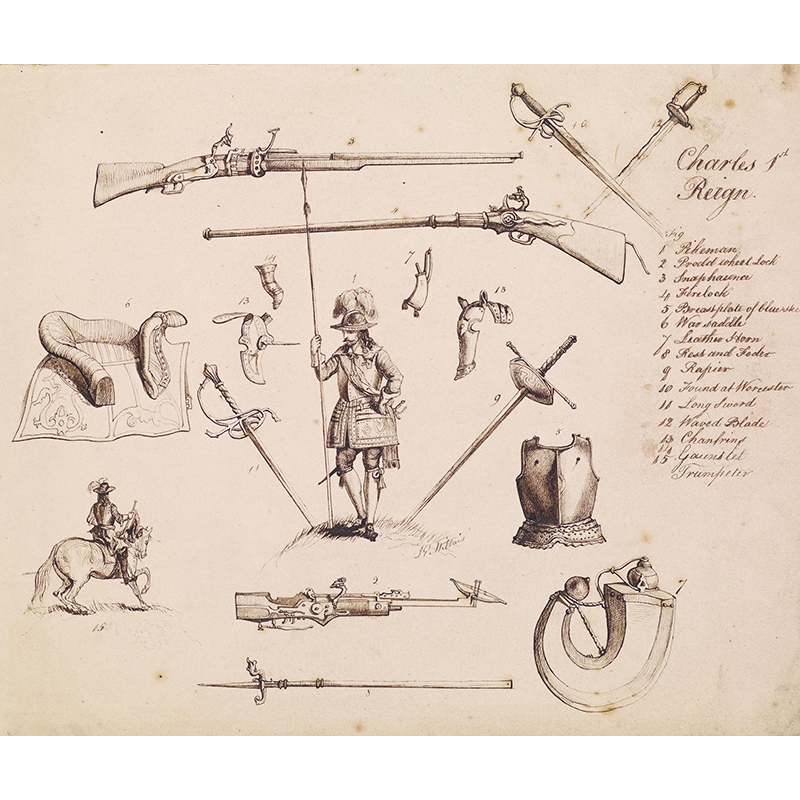 Charles 1st
Reign.
Fig
1 Pikeman
2 Prodd wheel Lock
3 Snaphaunce
4 Firelock
5 Breastplate of
6 War saddle
7 Leather Horn
8 Rest and Feder
9 Rapier
10 Found at Worcester
11 Long Sword
12 Waved Blade
13 Chanfrins
14 Gauntlet
15 Trumpeter
3
10
12
4
14
7
1
13
6
13
9
11
5
15
2